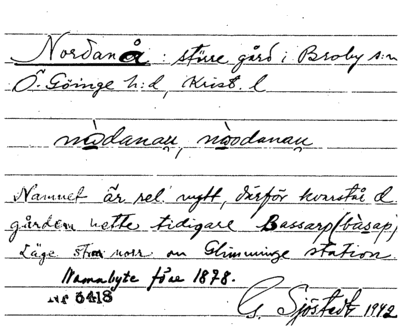 Nordanå : större gård i Broby s:n
Ö. Göinge h:d, Krist. l
nòdanaụ, nòodanaụ
Namnet är rel. nytt, därför kvarstå d
gården hette tidigare Bassarp (bàsap)
Läge norr om Glimminge station.
Namnbyte före 1878.
Nr 3418
G. Sjöstedt 1942